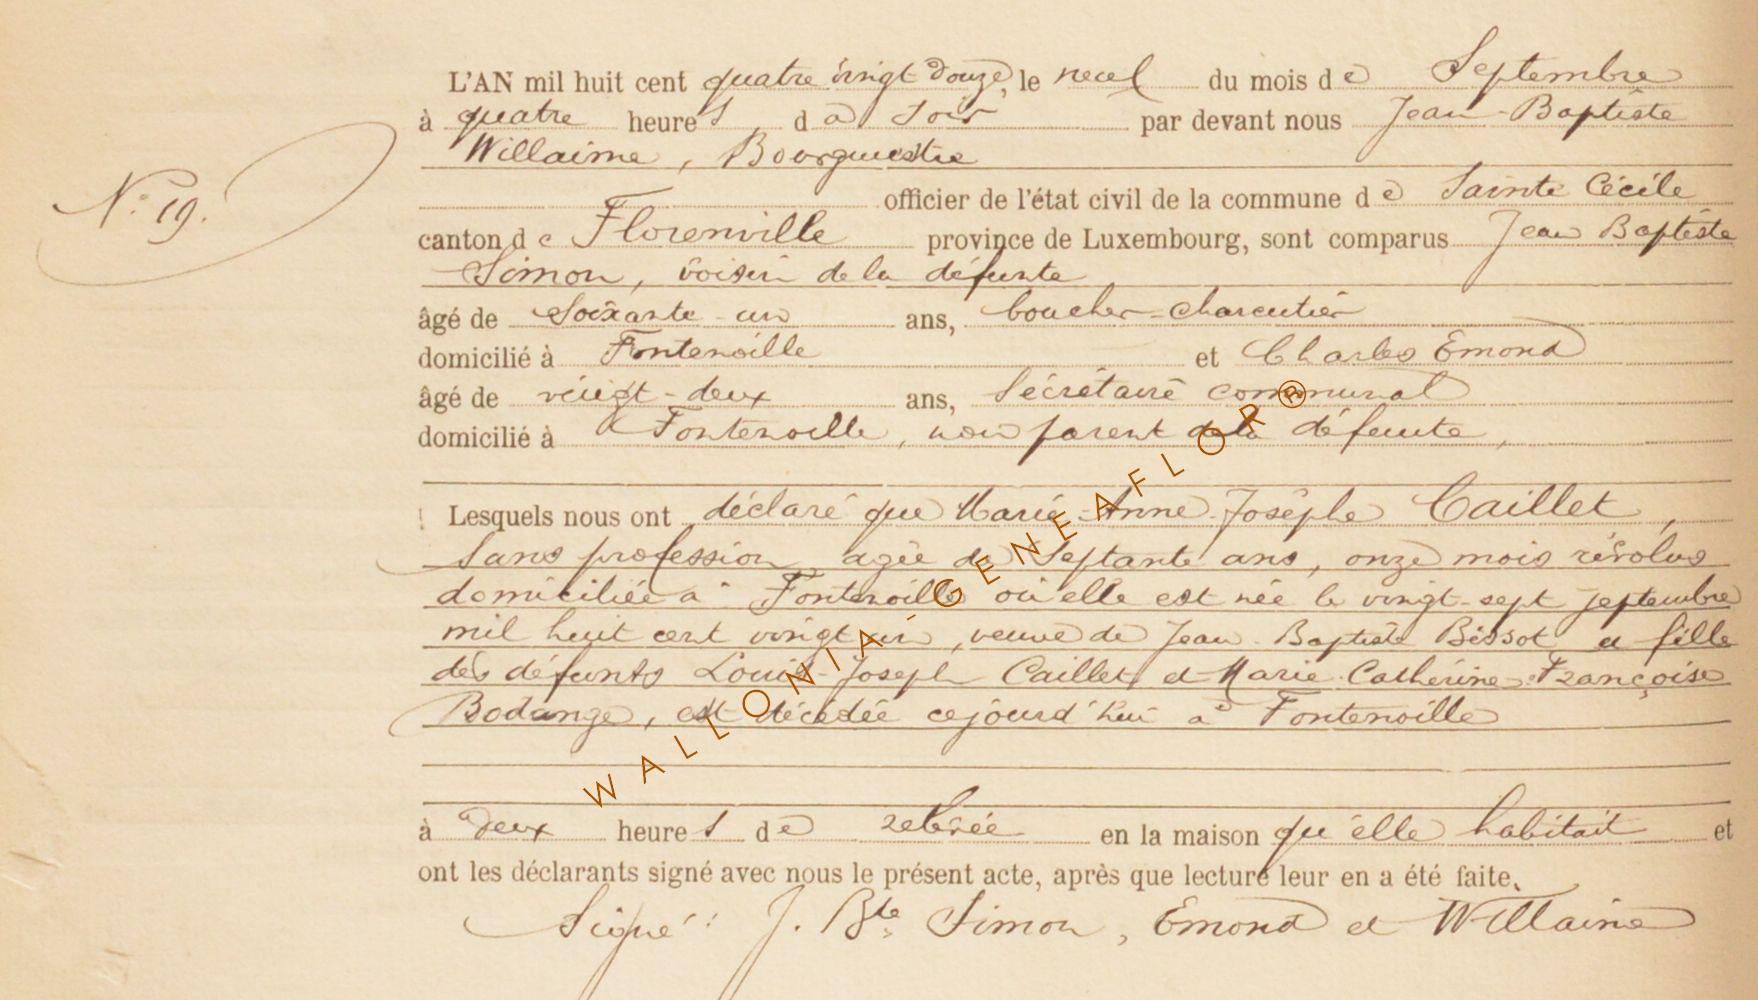 L'AN mil huit cent quatre vingt douze, le neuf du mois de Septembre
à quatre heures du soir par devant nous Jean-Baptiste
Willaime, Bourgmestre
N° 19.
officier de l'état civil de la commune de Sainte Cécile
canton de Florenville province de Luxembourg, sont comparus Jean Baptiste
Simon, voisin de la défunte
âgé de Soixante-un ans, boucher-charcutier
domicilié à Fontenoille et Charles Emond
âgé de vingt-deux ans, Secrétaire communal
domicilié à Fontenoille, non parent de la défunte,
Lesquels nous ont déclaré que Marie-Anne-Josèphe Caillet,
Sans profession, agée de Septante ans, onze mois révolus
domiciliée à Fontenoille où elle est née le vingt-sept septembre
mil huit cent vingt un, veuve de Jean-Baptiste Bissot et fille
des défunts Louis-Joseph Caillet et Marie-Catherine-Françoise
Bodange, est décédée cejourd'hui à Fontenoille
à deux heures de relevée en la maison qu'elle habitait et
ont les déclarants signé avec nous le présent acte, après que lecture leur en a été faite.
Signé: J. Bte Simon, Emond et Willaime
WALLONIA-GENEAFLOR®